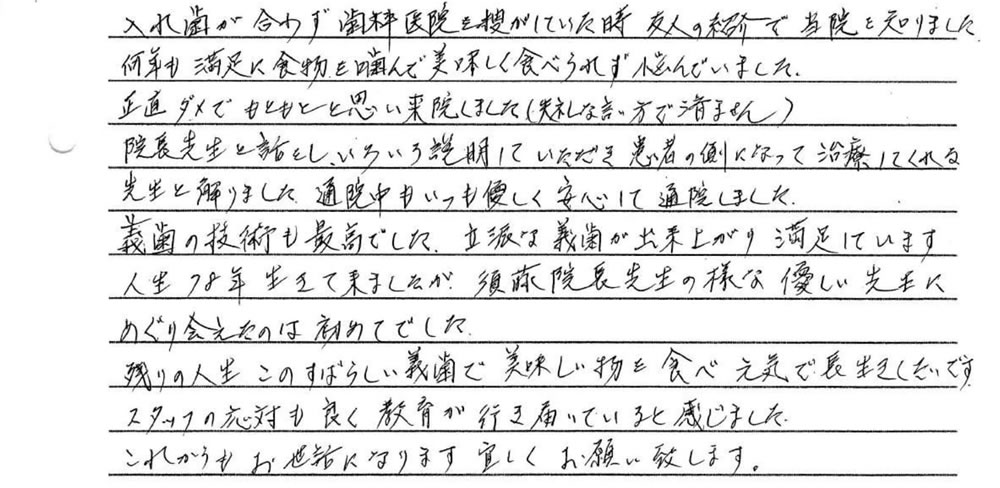 入れ歯が合わず歯科医院を捜がしていた時 友人の紹介で当院を知りました
何年も満足に食物を噛んで美味しく食べられず悩んでいました.
正直ダメでもともとと思い来院しました(失礼な言い方で済ません)
院長先生と話をし、いろいろ説明していただき 患者の側になって治療してくれる
先生と解りました. 通院中もいつも優しく安心して通院しました.
義歯の技術も最高でした. 立派な義歯が出来上がり満足しています
人生78年生きて来ましたが. 須藤院長先生の様な優しい先生に
めぐり会えたのは初めてでした.
残りの人生このすばらしい義歯で美味しい物を食べ元気で長生きしたいです
スタッフの応対も良く教育が行き届いていると感じました.
これからもお世話になります宜しくお願い致します。